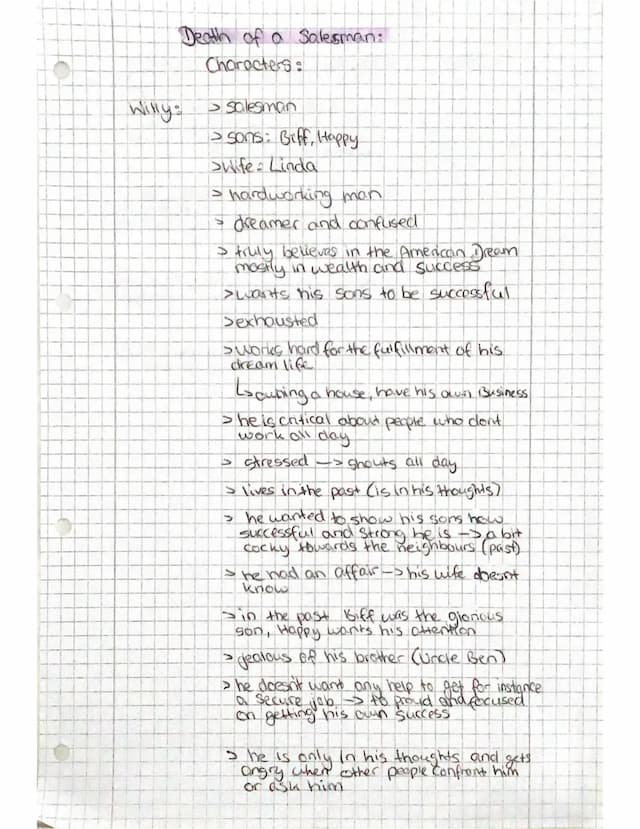 Death of a Salesman:
Characters:
Willy: > salesman
> sons: Biff, Happy
> Wife: Linda
> hardworking man
> dreamer and confused
> truly believes in the American Dream
mostly in wealth and success
> wants his sons to be successful
> exhausted
> works hard for the fulfillment of his
dream life
↳ owning a house, have his own Business
> he is critical about people who dont
work all day
> stressed —> shouts all day
> lives in the past (is in his thoughts)
> he wanted to show his sons how
successful and strong he is —> a bit
cocky towards the neighbours (past)
> he had an affair —> his wife doesnt
know
> in the past Biff was the glorious
son, Happy wants his attention
> jealous of his brother (Uncle Ben)
> he doesn't want any help to get for instance
a secure job —> to proud and focused
on getting his own success
> he is only in his thoughts and gets
angry when other people confront him
or ask him